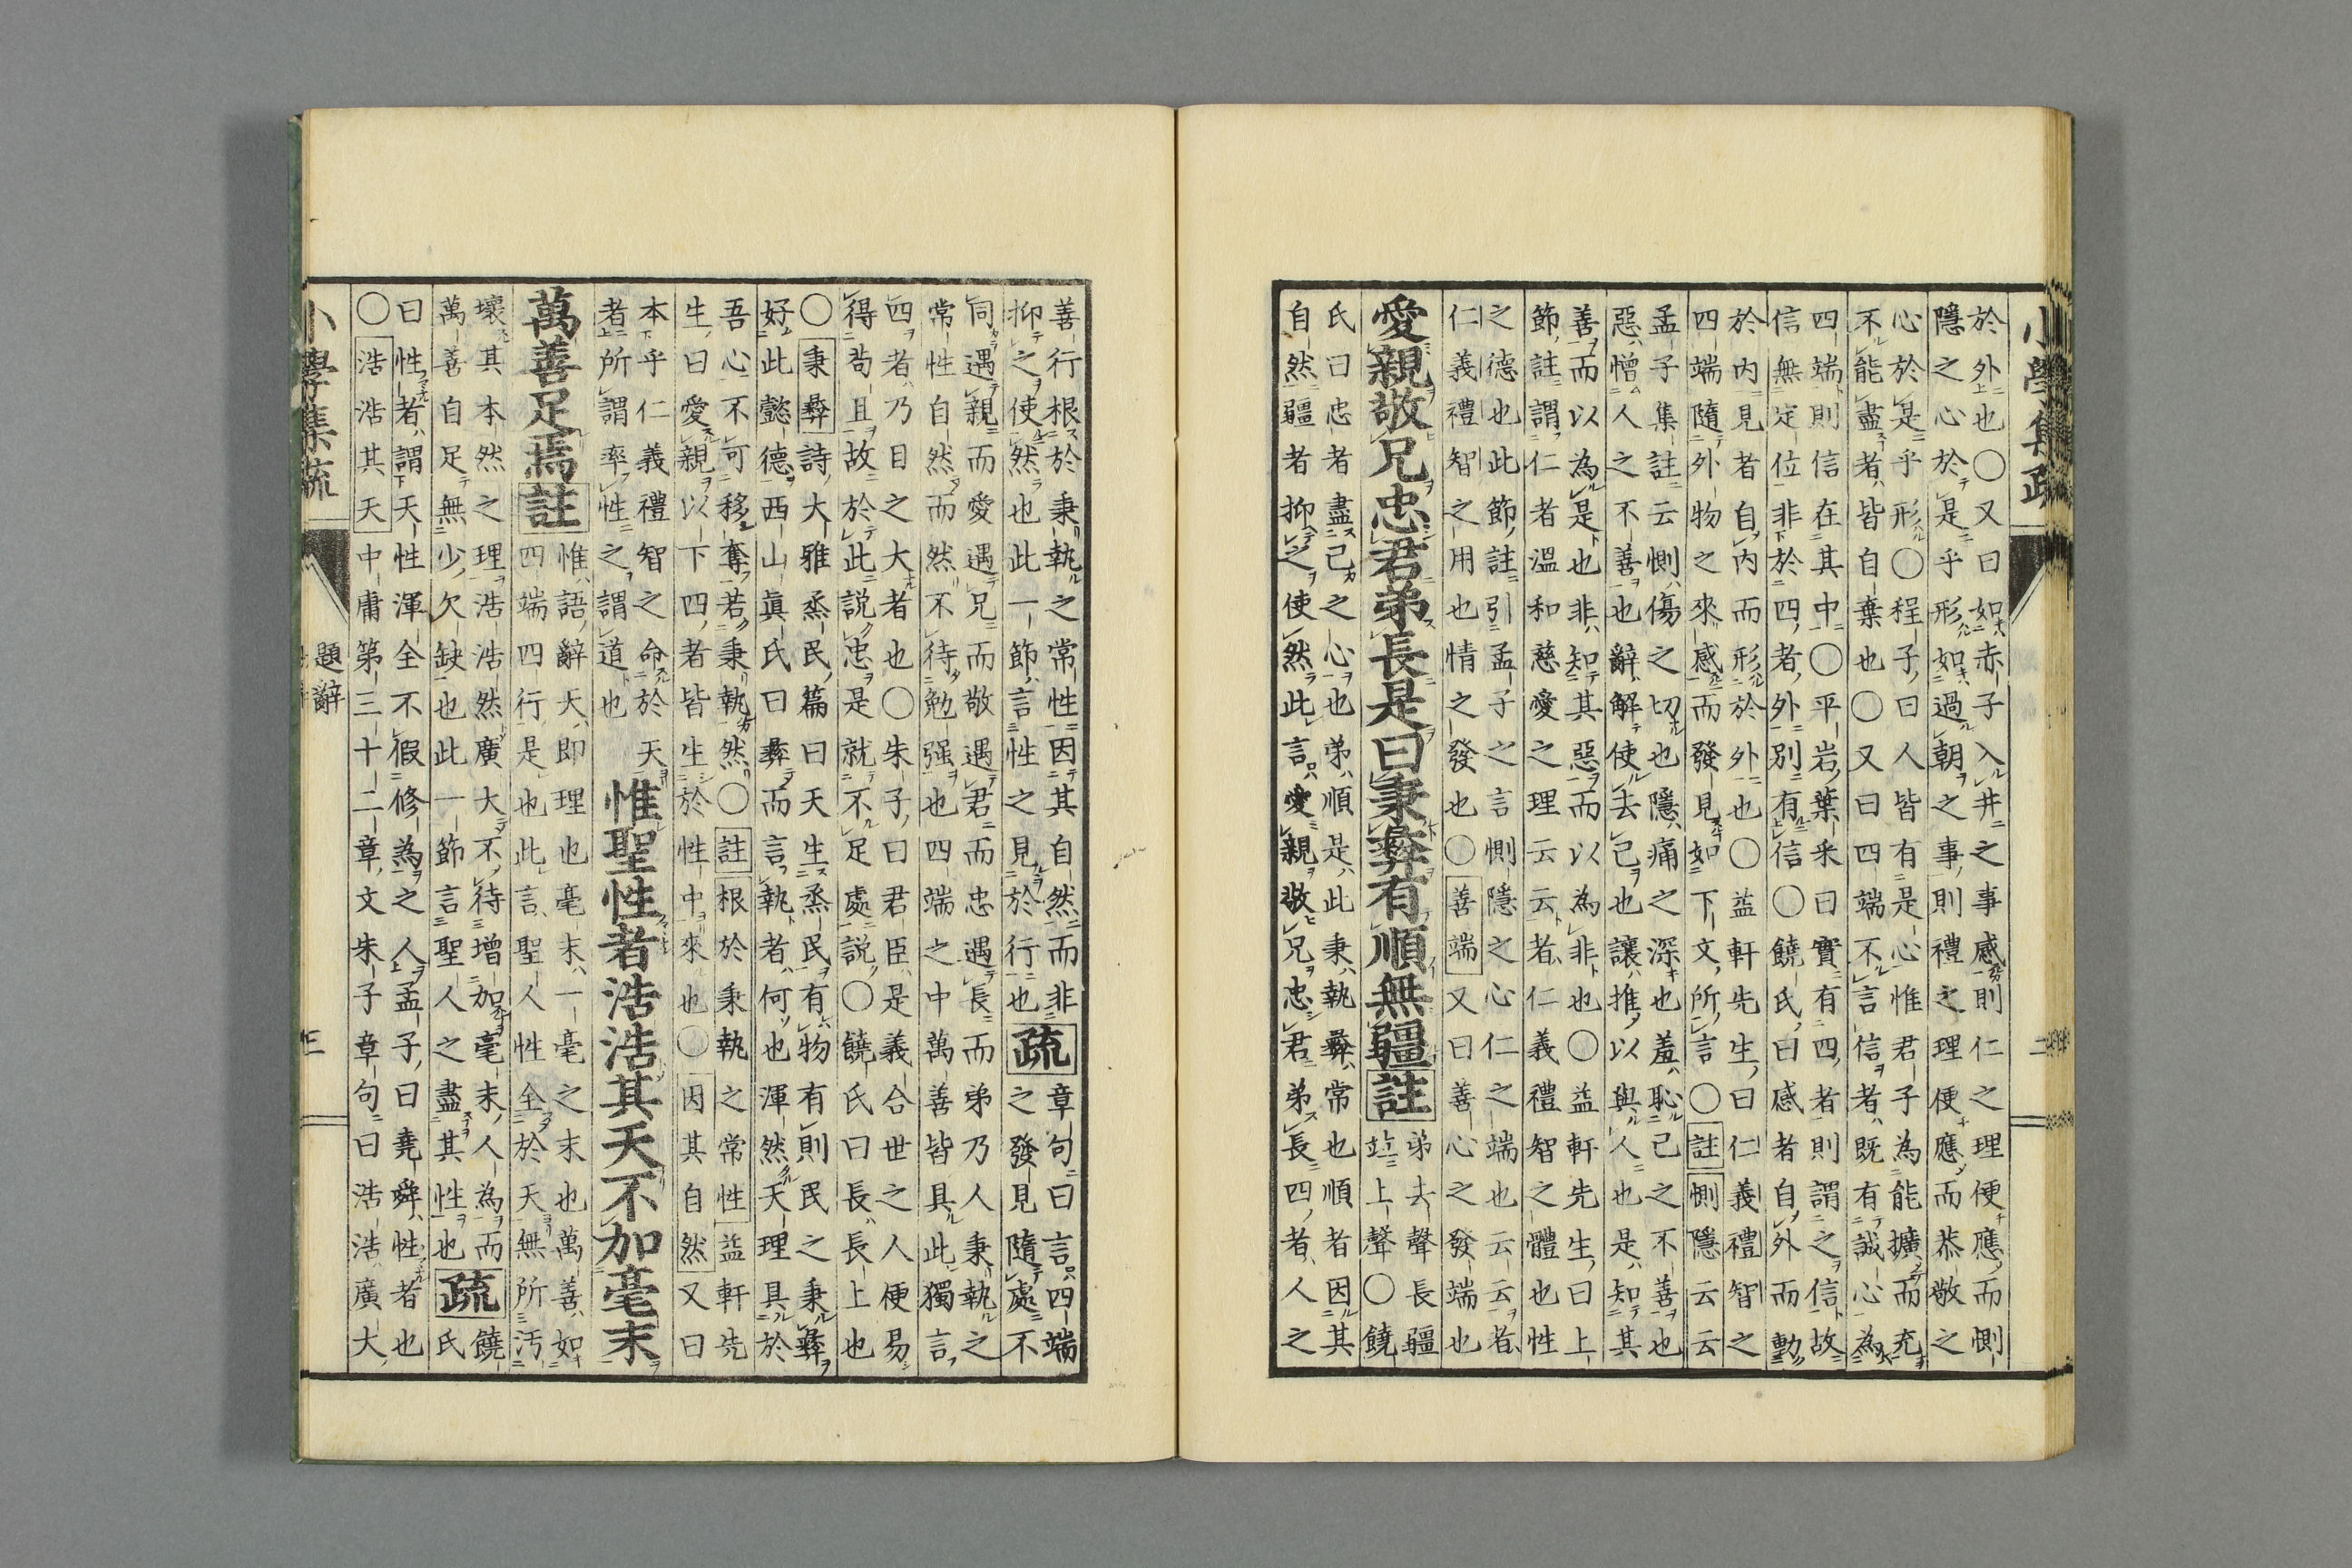 小學集疏
二
於外也○又曰如赤子入井之事感則仁之理便應而惻
隱之心於是乎形如過朝之事則禮之理便應而恭敬之
心於是乎形○程子曰人皆有是心惟君子為能擴而充
不能盡者皆自棄也○又曰四端不言信者既有誠心為
四端則信在其中○平岩葉采曰實有四者則謂之信故
信無定位非於四者外別有信○饒氏曰感者自外而動
於內見者自內而形於外也○益軒先生曰仁義禮智之
四端隨外物之來感而發見如下文所言○註惻隱云云
孟子集註云惻傷之切也隱痛之深也羞恥己之不善也
惡憎人之不善也辭解使去己也讓推以與人也是知其
善而以為是也非知其惡而以為非也○益軒先生曰上
節註謂仁者溫和慈愛之理云云者仁義禮智之體也性
之德也此節註引孟子之言惻隱之心仁之端也云云者
仁義禮智之用也情之發也○善端又曰善心之發端也
愛親敬兄忠君弟長是曰秉彝有順無疆註
弟去聲長疆
竝上聲○饒
氏曰忠者盡己之心也弟順是此秉執彝常也順者因其
自然疆者抑之使然此言愛親敬兄忠君弟長四者人之
善行根於秉執之常性因其自然而非
抑之使然也此一節言性之見於行也
疏
章句曰言四端
之發見隨處不
同遇親而愛遇兄而敬遇君而忠遇長而弟乃人秉執之
常性自然而然不待勉强也四端之中萬善皆具此獨言
四者乃目之大者也○朱子曰君臣是義合世之人便易
得苟且故於此説忠是就不足處説○饒氏曰長長上也
○秉彝詩大雅烝民篇曰天生烝民有物有則民之秉彝
好此懿德西山眞氏曰彝而言執者何也渾然天理具於
吾心不可移奪若秉執然○註根於秉執之常性益軒先
生曰愛親以下四者皆生於性中來也○因其自然又曰
本乎仁義禮智之命於天
者所謂率性之謂道也
惟聖性者浩浩其天不加毫末
萬善足焉註
惟語辭天即理也毫末一毫之末也萬善如
四端四行是也此言聖人性全於天無所汚
壞其本然之理浩浩然廣大不待增加毫末人為而
萬善自足無少欠缺也此一節言聖人之盡其性也
疏
饒
氏
曰性者謂天性渾全不假修為之人孟子曰堯舜性者也
○浩浩其天中庸第三十二章文朱子章句曰浩浩廣大
小學集疏
題辭
三